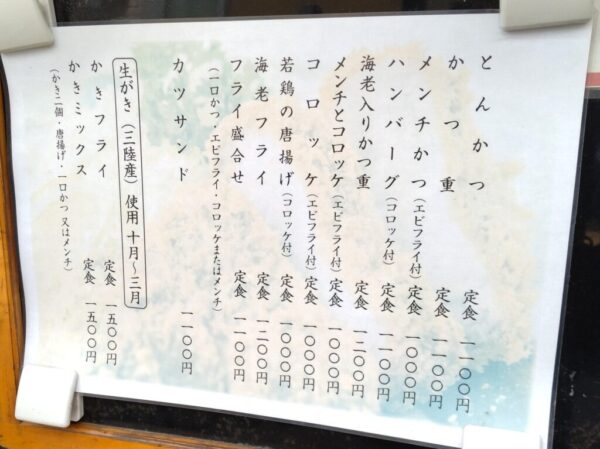 とんかつ 定食 一一〇〇円
かつ重 定食 一一〇〇円
メンチかつ(エビフライ付) 定食 一〇〇〇円
ハンバーグ(コロッケ付) 定食 一〇〇〇円
海老入りかつ重 定食 一三〇〇円
メンチとコロッケ(エビフライ付) 定食 一〇〇〇円
コロッケ(エビフライ付) 定食 一〇〇〇円
若鶏の唐揚げ(コロッケ付) 定食 一〇〇〇円
海老フライ 定食 一二〇〇円
フライ盛合せ 定食 一一〇〇円
(一口かつ・エビフライ・コロッケまたはメンチ)
カツサンド 一一〇〇円
生がき(三陸産)使用 十月~三月
かきフライ 定食 一五〇〇円
かきミックス 定食 一五〇〇円
(かき二個・唐揚げ・一口かつ 又はメンチ)